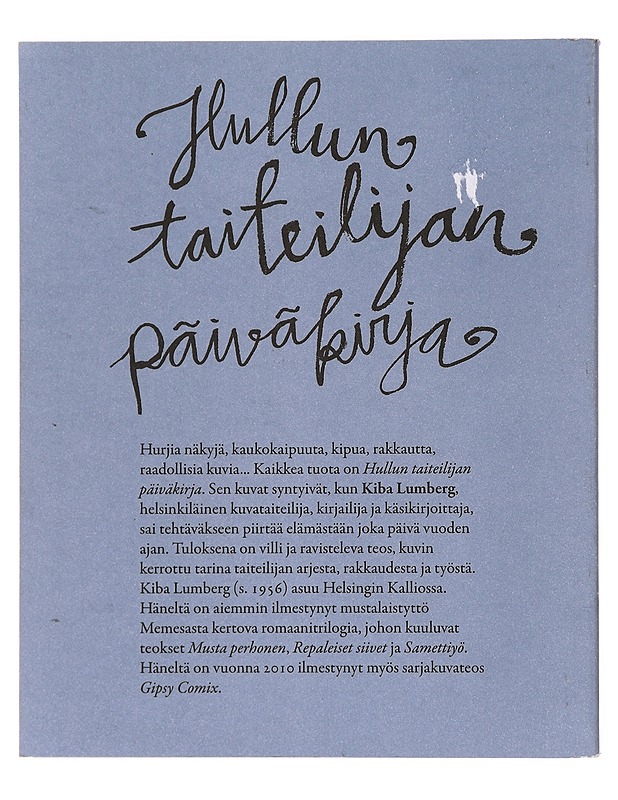 Hullun
taiteilijan
päiväkirja
Hurjia näkyjä, kaukokaipuuta, kipua, rakkautta,
raadollisia kuvia... Kaikkea tuota on Hullun taiteilijan
päiväkirja. Sen kuvat syntyivät, kun Kiba Lumberg,
helsinkiläinen kuvataiteilija, kirjailija ja käsikirjoittaja,
sai tehtäväkseen piirtää elämästään joka päivä vuoden
ajan. Tuloksena on villi ja ravisteleva teos, kuvin
kerrottu tarina taiteilijan arjesta, rakkaudesta ja työstä.
Kiba Lumberg (s. 1956) asuu Helsingin Kalliossa.
Häneltä on aiemmin ilmestynyt mustalaistyttö
Memesasta kertova romaanitrilogia, johon kuuluvat
teokset Musta perhonen, Repaleiset siivet ja Samettiyö.
Häneltä on vuonna 2010 ilmestynyt myös sarjakuvateos
Gipsy Comix.